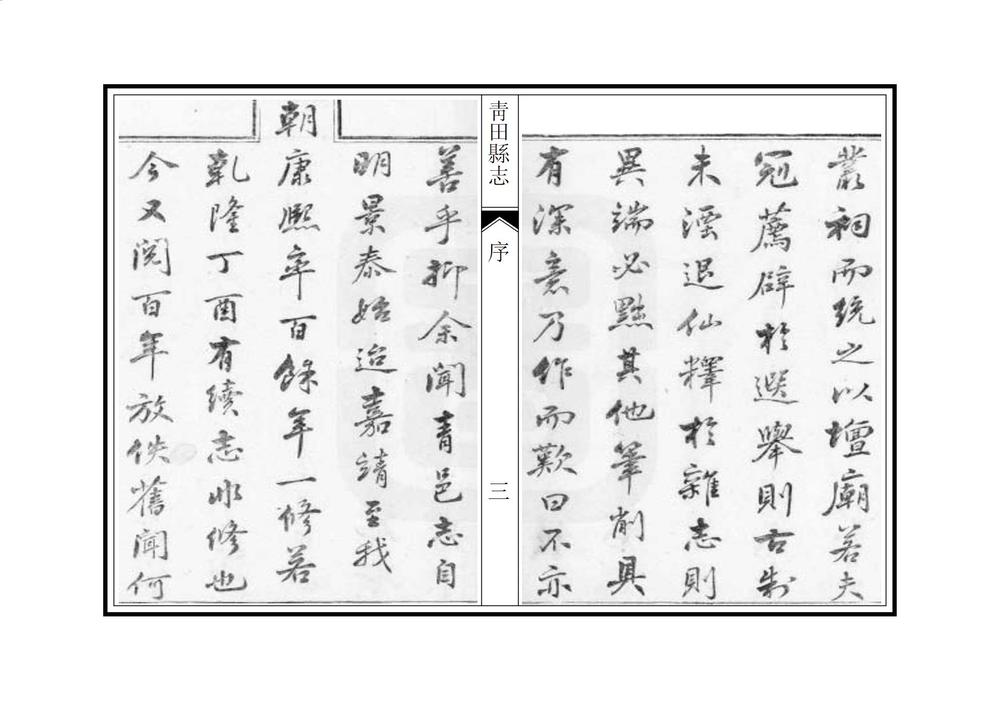 叢祠而統之以壇廟若夫
冠薦辟於選舉則古制
未湮退仙釋於雜志則
異端必黜其他筆削具
有深意乃作而歎曰不亦
青田縣志
序
三
善乎抑余聞青邑志自
明景泰始迨嘉靖至我
朝康熙率百餘年一修若
乾隆丁酉有續志非修也
今又閱百年放佚舊聞何